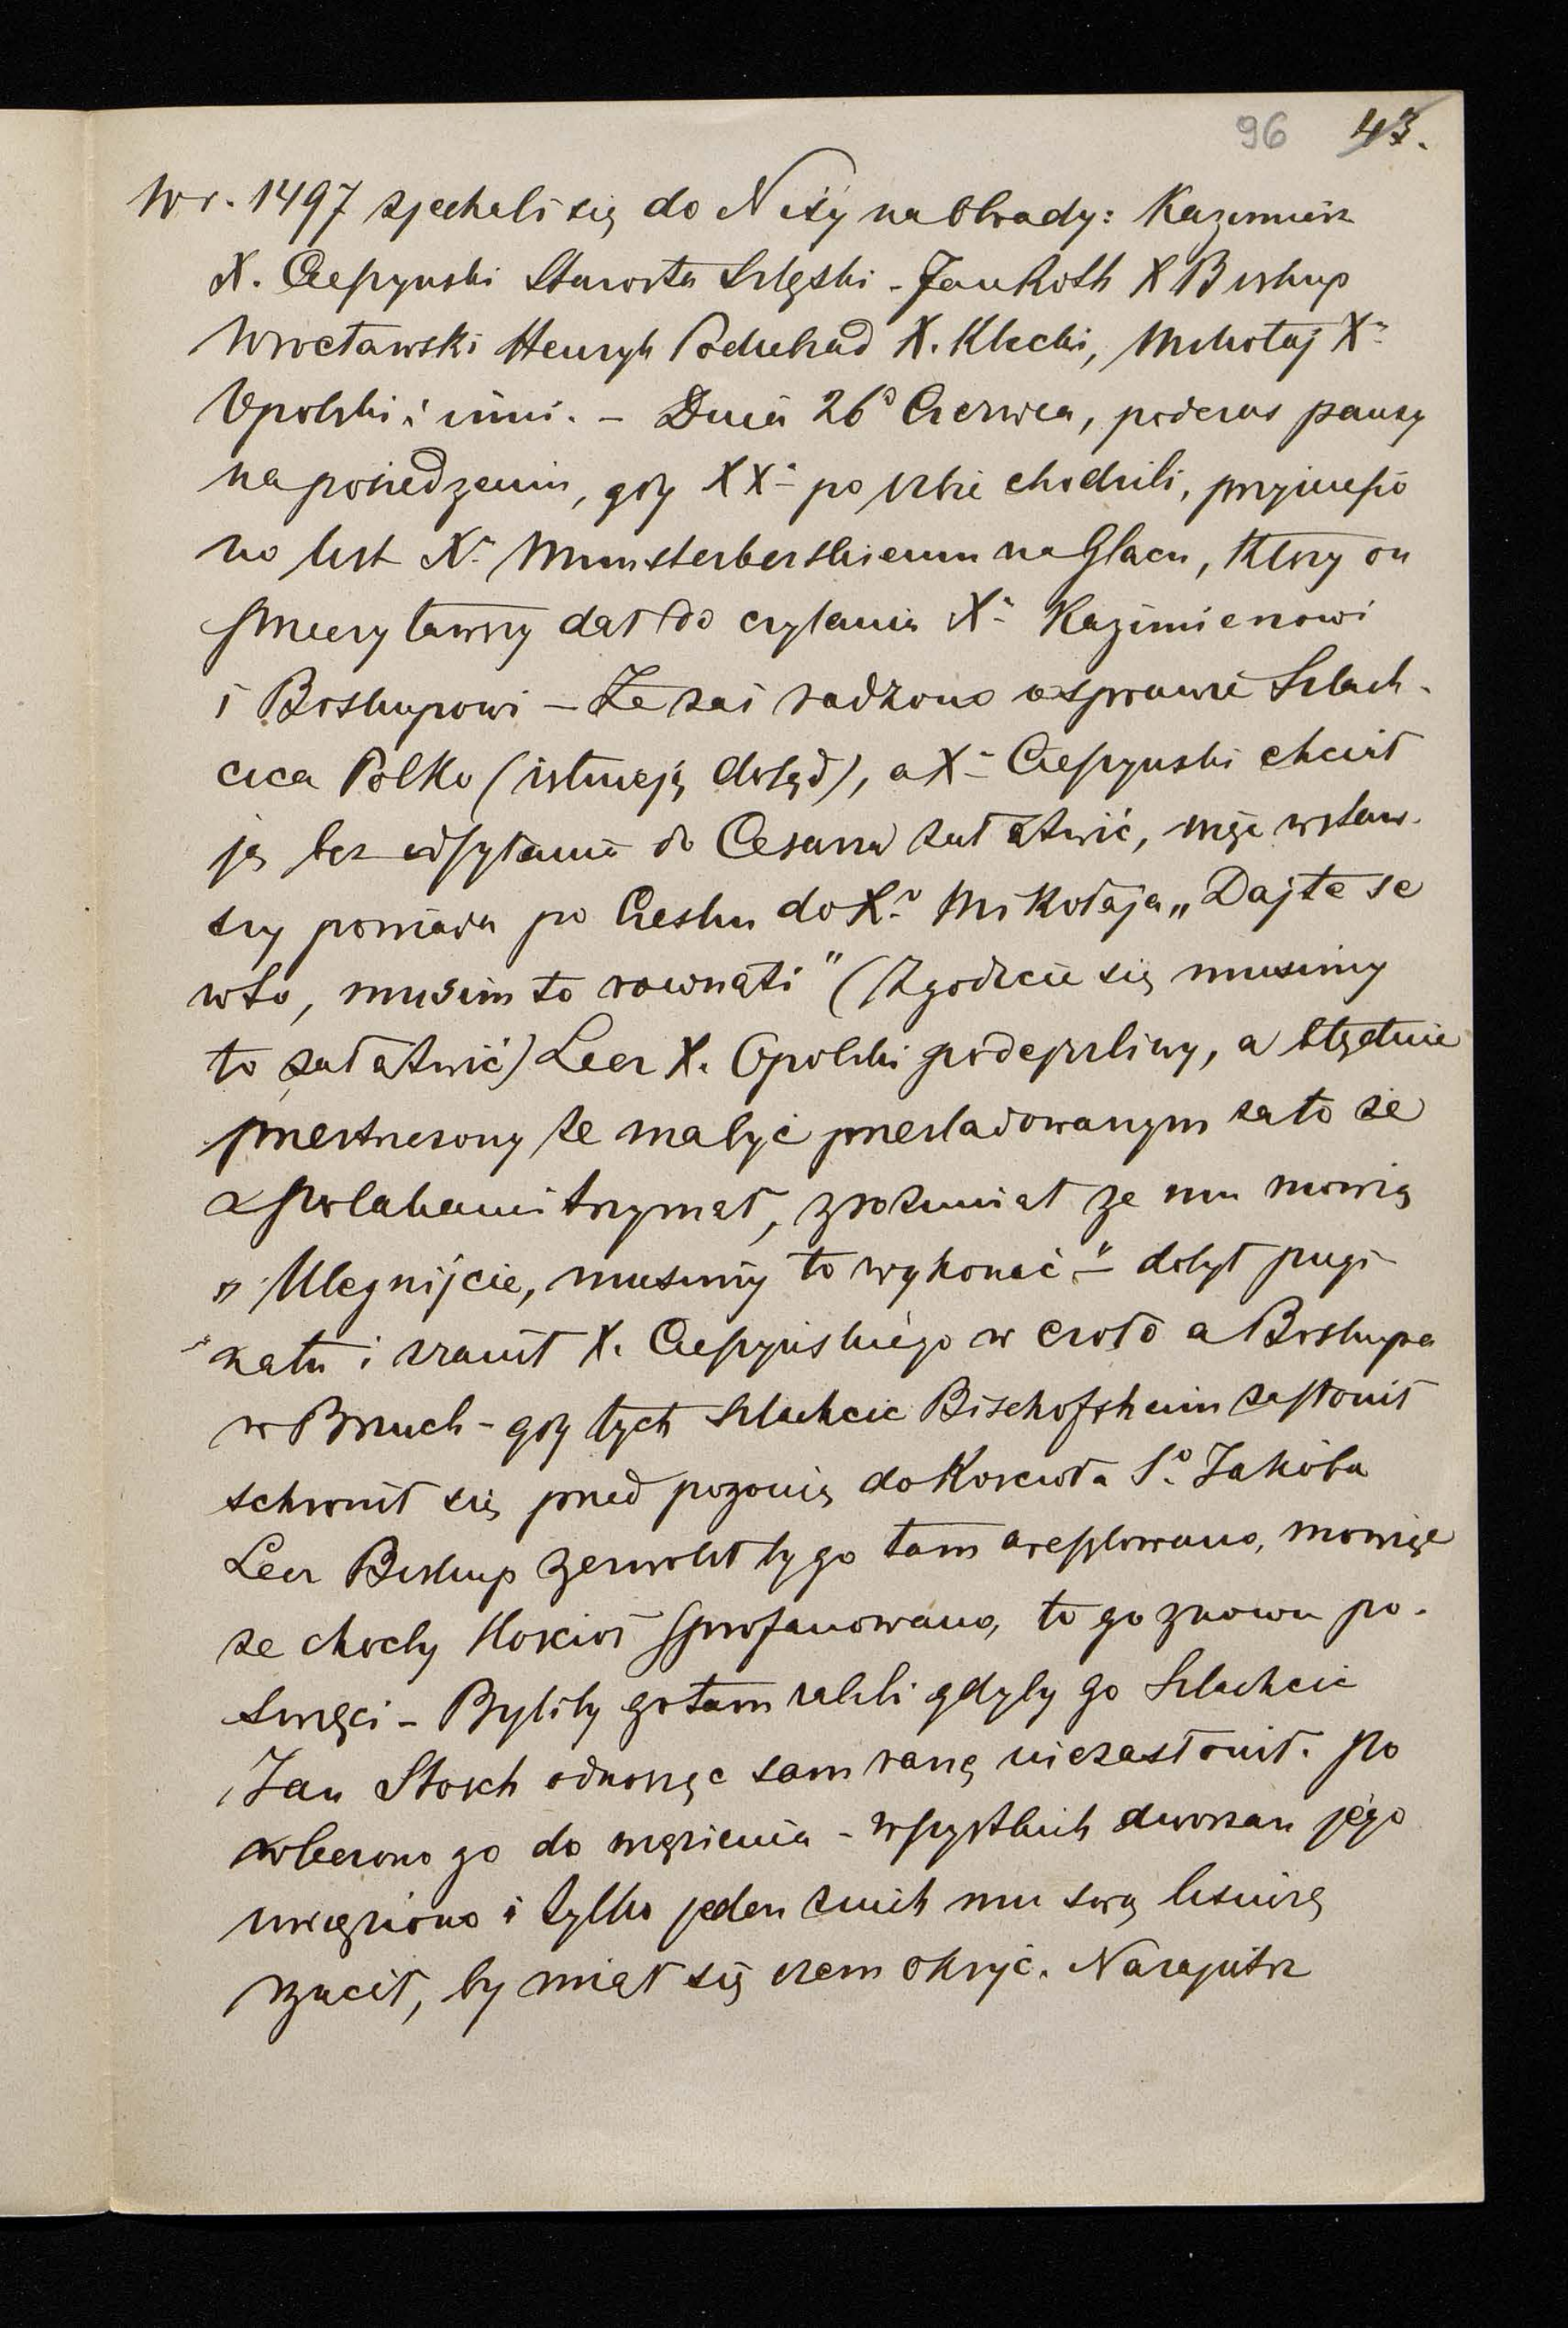 96 43.
W r. 1497 zjechali się do Nisy na Obrady: Kazimierz
X. Cieszynski Starosta Szląski - Jan Roth X Biskup
Wrocławski Henryk Podiebrad X. Kłacki, Mikołaj Xᵉ
Opolski i inni. - Dnia 26º Czerwca, podczas pauzy
na posiedzeniu, gdy XXᵉ po izbie chodzili, przyniesio
no list Xᵉ Münsterberskiemu na Glacu, który on
przeczytawszy dał do czytania Xᵉ Kazimierzowi
i Biskupowi - Że zaś radzono o sprawie Szlach-
cica Polko (istnieją dotąd), a Xᵉ Cieszynski chciał
ją bez odsyłania do Cesarza załatwić, więc wstaw-
szy powiada po Czesku do Xᵃ Mikołaja „Dajte se
w to, musim to rownati" (Zgodzcie się musimy
to załatwić) Lecz X. Opolski podejrzliwy, a błędnie
przestrzeżony że ma być prześladowanym za to że
z Polakami trzymał, zrozumiał ze mu mowią
„Ulegnijcie, musimy to wykonać" - dobył pugi-
nału i zranił X. Cieszyńskiego w czoło a Biskupa
w Brzuch - gdy tych Szlachcic Bischofsheim zasłonił
schronił się przed pogonią do Koscioła Sº Jakóba
Lecz Biskup zezwolił by go tam aresztowano, mowiąc
że choćby Kosciół sprofanowano, to go znowu po-
święci - Byliby go tam zabili gdyby go Szlachcic
Jan Stosch odnosząc sam ranę niezasłonił. Po
wleczono go do więzienia - wszystkich dworzan jego
uwięziono i tylko jeden z nich mu swą bluzę
rzucił, by miał się czem okryć. Nazajutrz